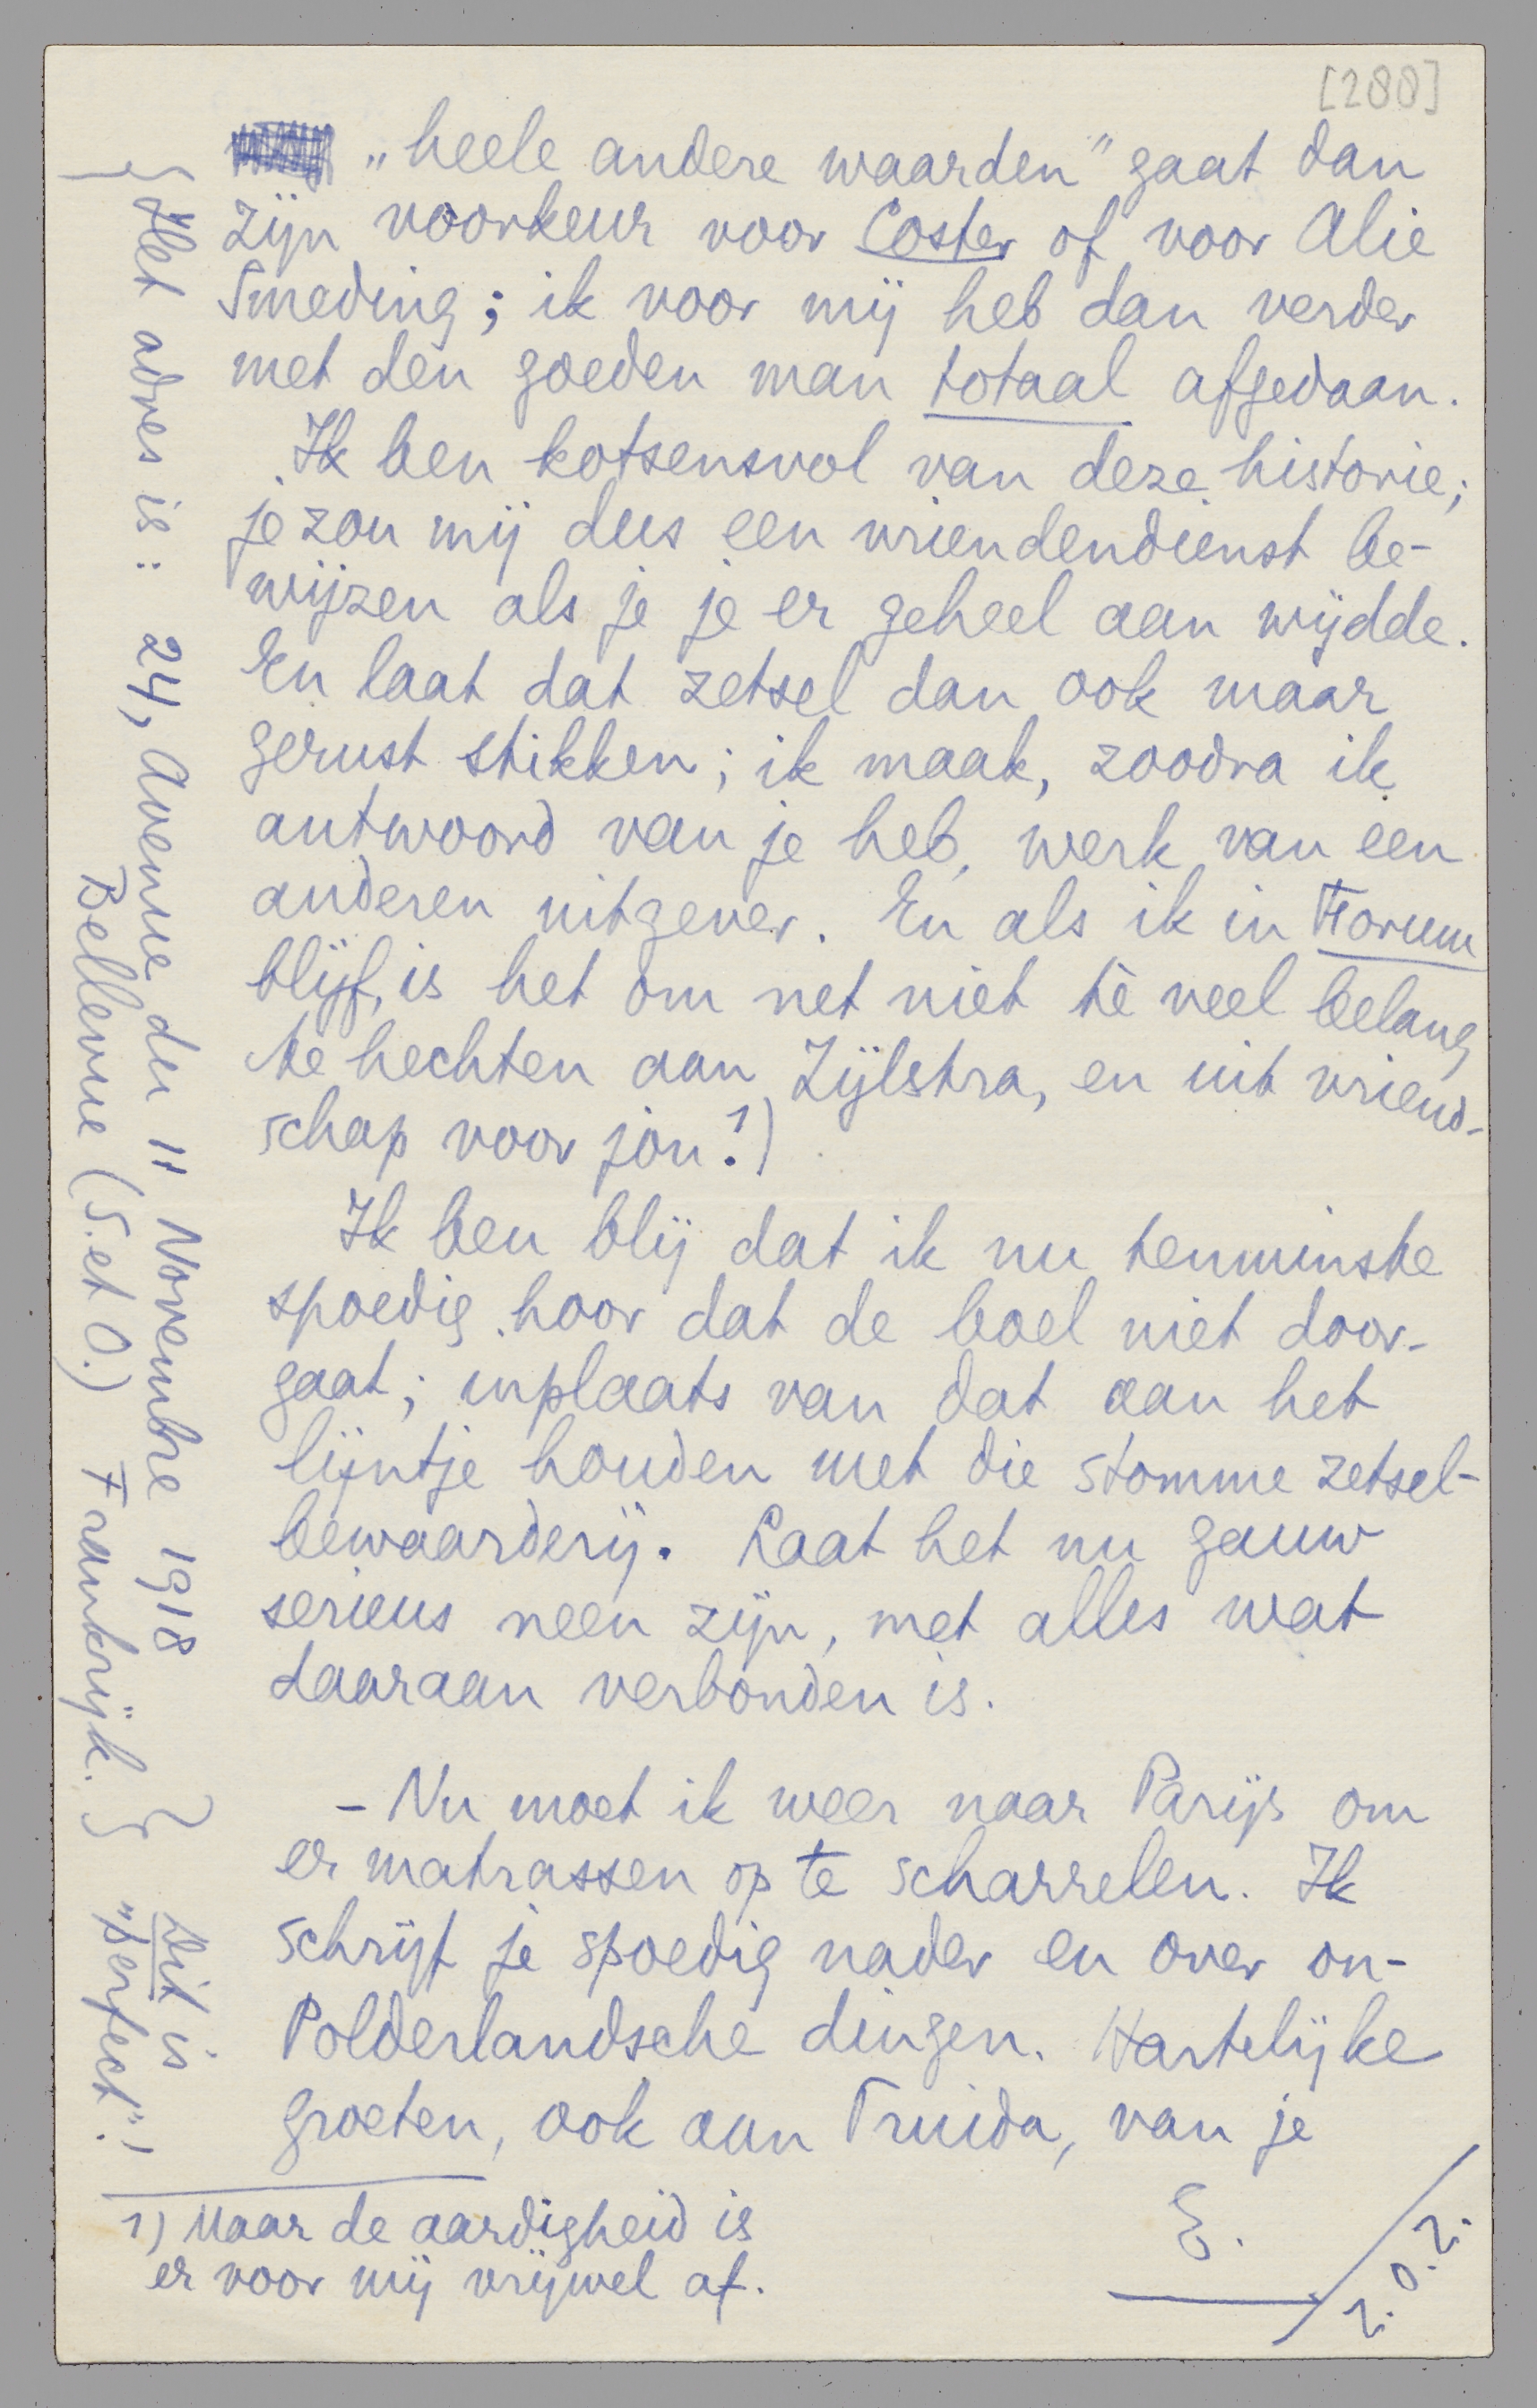 [288]
„heele andere waarden” gaat dan
zijn voorkeur voor Coster of voor Alie
Smeding; ik voor mij heb dan verder
met den goeden man totaal afgedaan.
Ik ben kotsensvol van deze historie;
je zou mij dus een vriendendienst be-
wijzen als je je er geheel aan wijdde.
En laat dat zetsel dan ook maar
gerust stikken; ik maak, zoodra ik
antwoord van je heb, werk van een
anderen uitgever. En als ik in Forum
blijf, is het om net niet tè veel belang
te hechten aan Zijlstra, en uit vriend-
schap voor jou. 1)
Ik ben blij dat ik nu tenminste
spoedig hoor dat de boel niet door-
gaat; inplaats van dat aan het
lijntje houden met die stomme zetsel-
bewaarderij. Laat het nu gauw
serieus neen zijn, met alles wat
daaraan verbonden is.
- Nu moet ik weer naar Parijs om
er matrassen op te scharrelen. Ik
schrijf je spoedig nader en over on-
Polderlandsche dingen. Hartelijke
groeten, ook aan Truida, van je
E.
z.o.z.
1) Maar de aardigheid is
er voor mij vrijwel af.
{Het adres is: 24, Avenue du 11 Novembre 1918
Bellevue (S. et O.) Frankrijk.}
Dit is
"perfect"!